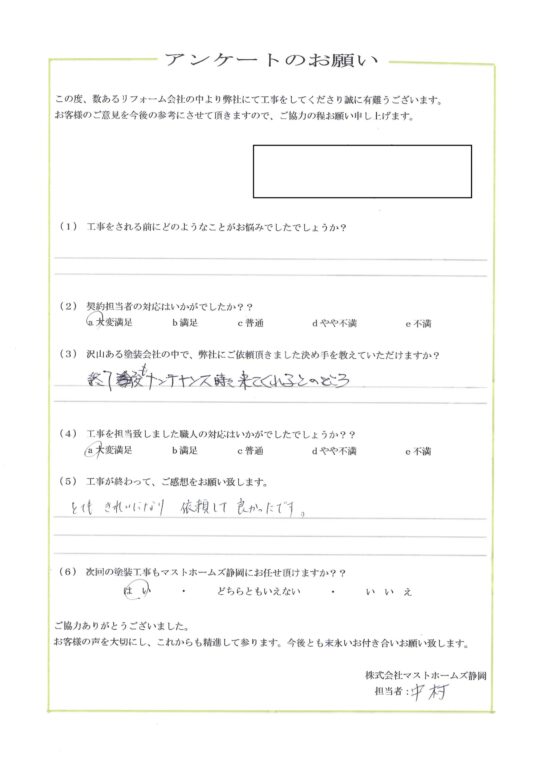 アンケートのお願い
この度、数あるリフォーム会社の中より弊社にて工事をしてくださり誠に有難うございます。
お客様のご意見を今後の参考にさせて頂きますので、ご協力の程お願い申し上げます。
（1） 工事をされる前にどのようなことがお悩みでしたでしょうか？
（2） 契約担当者の対応はいかがでしたか？？
a 大変満足 b 満足 c 普通 d やや不満 e 不満
（3） 沢山ある塗装会社の中で、弊社にご依頼頂きました決め手を教えていただけますか？
終了後もメンテナンス時に来てくれるとのところ
（4） 工事を担当致しました職人の対応はいかがでしたでしょうか？？
a 大変満足 b 満足 c 普通 d やや不満 e 不満
（5） 工事が終わって、ご感想をお願い致します。
とても きれいになり 依頼して 良かったです。
（6） 次回の塗装工事もマストホームズ静岡にお任せ頂けますか？？
は い ・ どちらともいえない ・ い い え
ご協力ありがとうございました。
お客様の声を大切にし、これからも精進して参ります。今後とも末永いお付き合いお願い致します。
株式会社マストホームズ静岡
担当者：中村